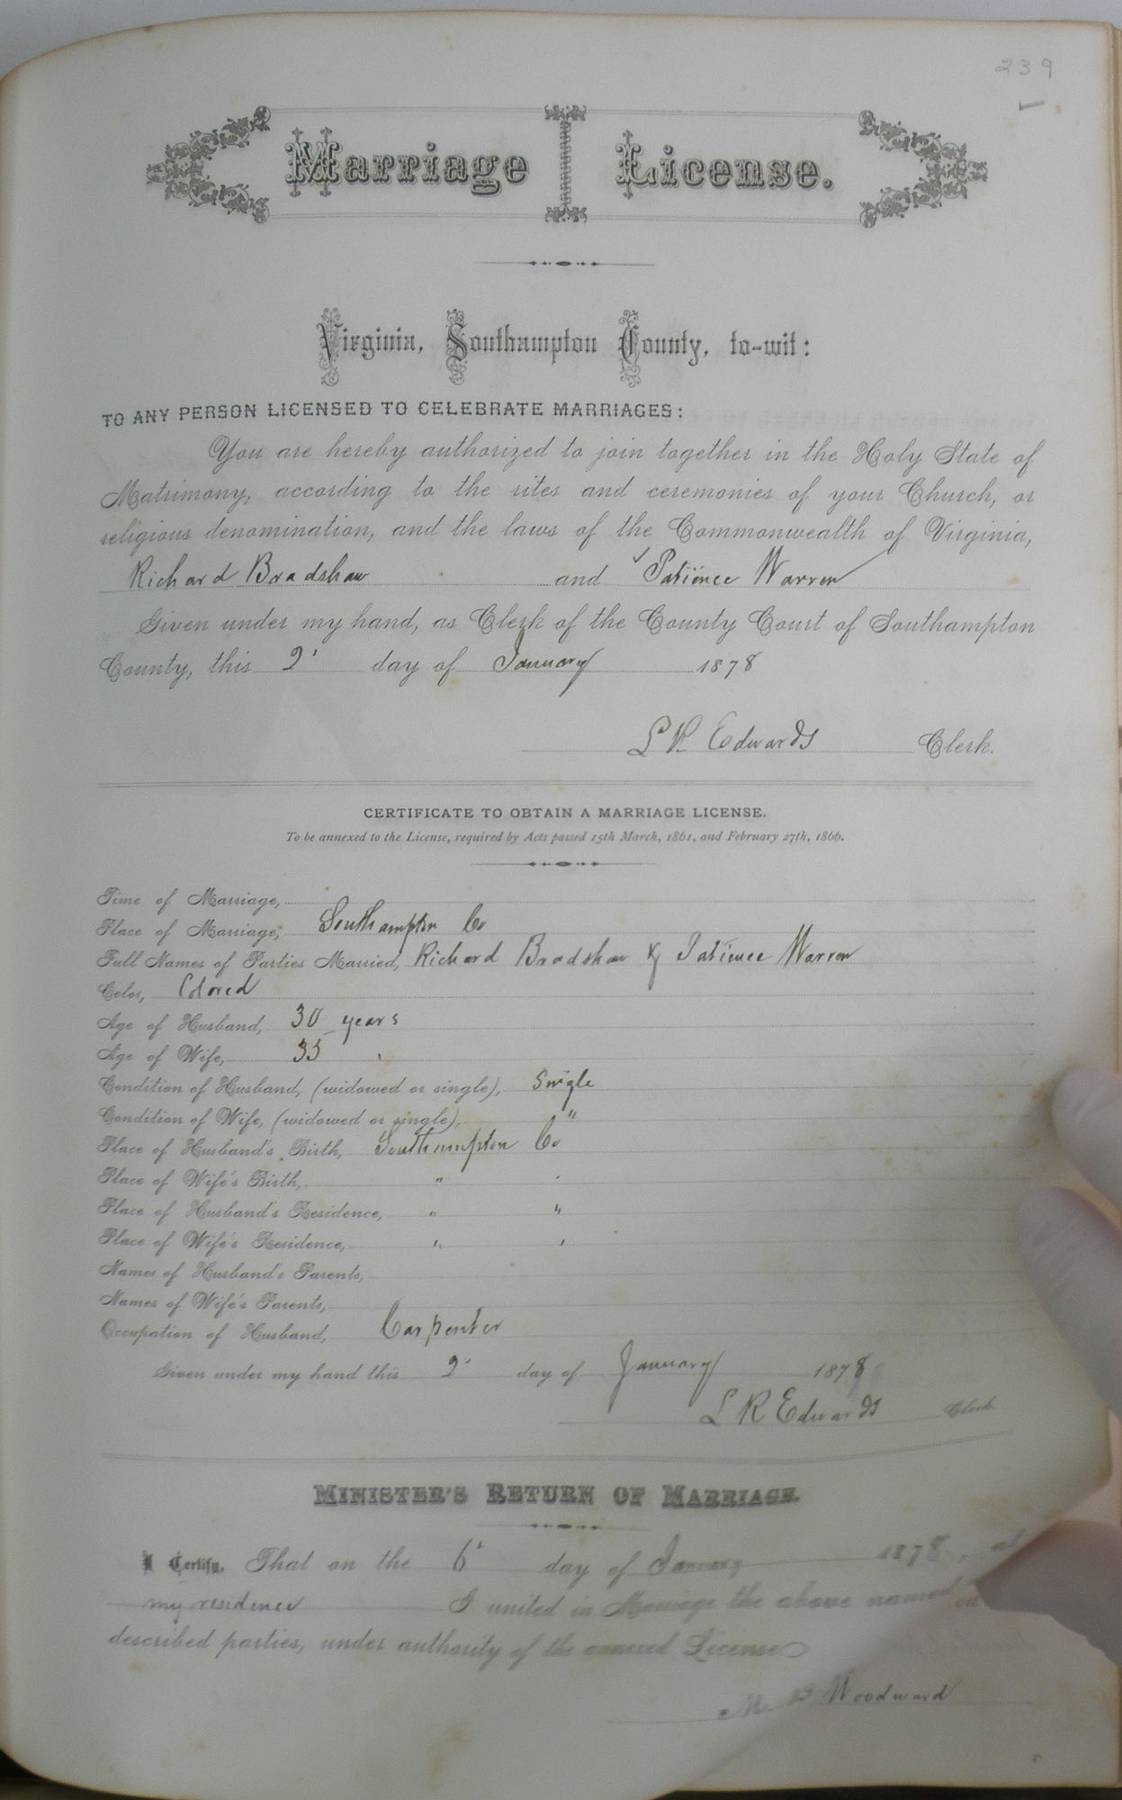 239
Marriage License.
Virginia, Southampton County, to-wit:
TO ANY PERSON LICENSED TO CELEBRATE MARRIAGES:
You are hereby authorized to join together in the Holy State of
Matrimony, according to the rites and ceremonies of your Church, or
religious denomination, and the laws of the Commonwealth of Virginia,
Richard Bradshaw and Patience Warren
Given under my hand, as Clerk of the County Court of Southampton
County, this 2' day of January 1878
L R Edwards Clerk.
CERTIFICATE TO OBTAIN A MARRIAGE LICENSE.
To be annexed to the License, required by Acts passed 15th March, 1861, and February 27th, 1866.
Time of Marriage,
Place of Marriage, Southampton Co
Full Names of Parties Married, Richard Bradshaw & Patience Warren
Color, Colored
Age of Husband, 30 years
Age of Wife, 35 "
Condition of Husband, (widowed or single), Single
Condition of Wife, (widowed or single), "
Place of Husband's Birth, Southampton Co
Place of Wife's Birth, " "
Place of Husband's Residence, " "
Place of Wife's Residence, " "
Names of Husband's Parents,
Names of Wife's Parents,
Occupation of Husband, Carpenter
Given under my hand this 2' day of January 1878
L R Edwards Clerk
MINISTER'S RETURN OF MARRIAGE.
I Certify, That on the 6' day of January 1878, at
my residence I united in Marriage the above named
described parties, under authority of the annexed License
M. B Woodward